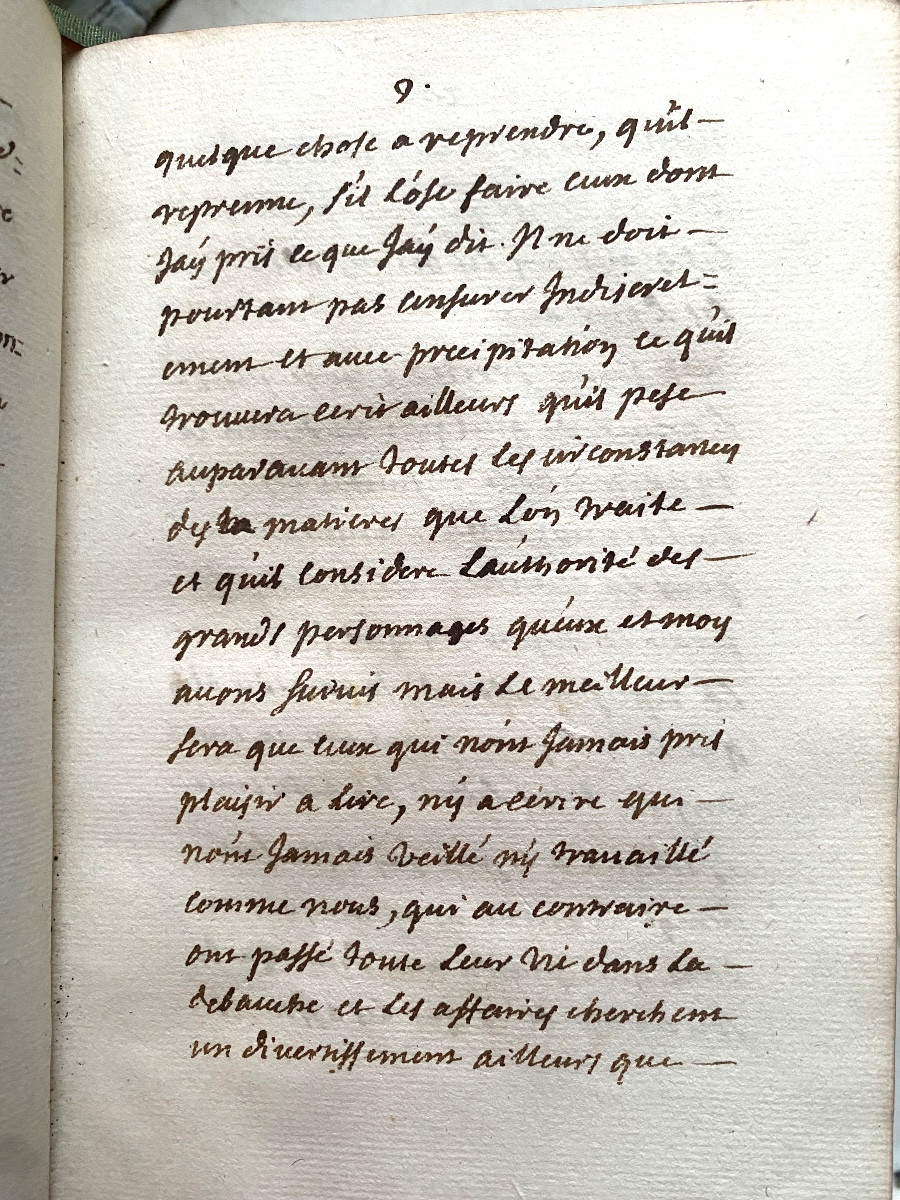 9.
quelque chose a reprendre, qu'il
reprenne, s'il L'ose faire ceux dont
Jaÿ pris ce que Jaÿ dit. Il ne doit
pourtant pas censurer Indiscret=
ement et avec precipitation ce qu'il
trouvera ecrit ailleurs qu'il pese
auparavant toutes les circonstances
des matieres que L'on traite
et qu'il considere L'authorité des
grands personnages qu'eux et moy
avons suivis mais Le meilleur
sera que ceux qui n'ont Jamais pris
plaisir a Lire, nÿ a écrire qui
n'ont Jamais veillé nÿ travaillé
comme nous, qui au contraire
ont passé toute Leur vie dans La
debauche et Les affaires cherchent
un divertissement ailleurs que